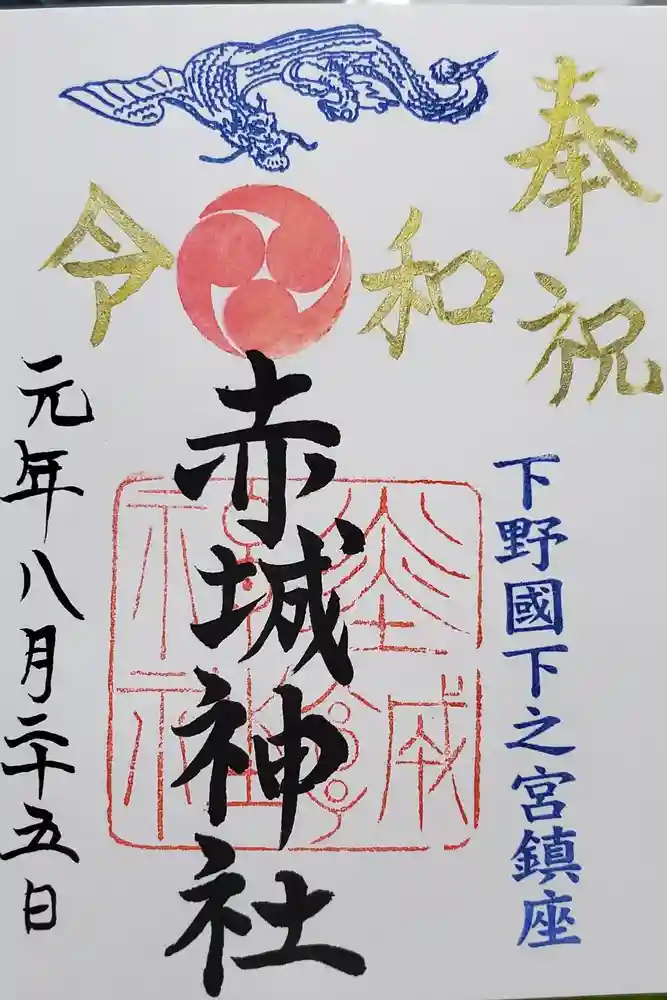 奉祝
令和
下野國下之宮鎮座
赤城神社
元年八月二十五日